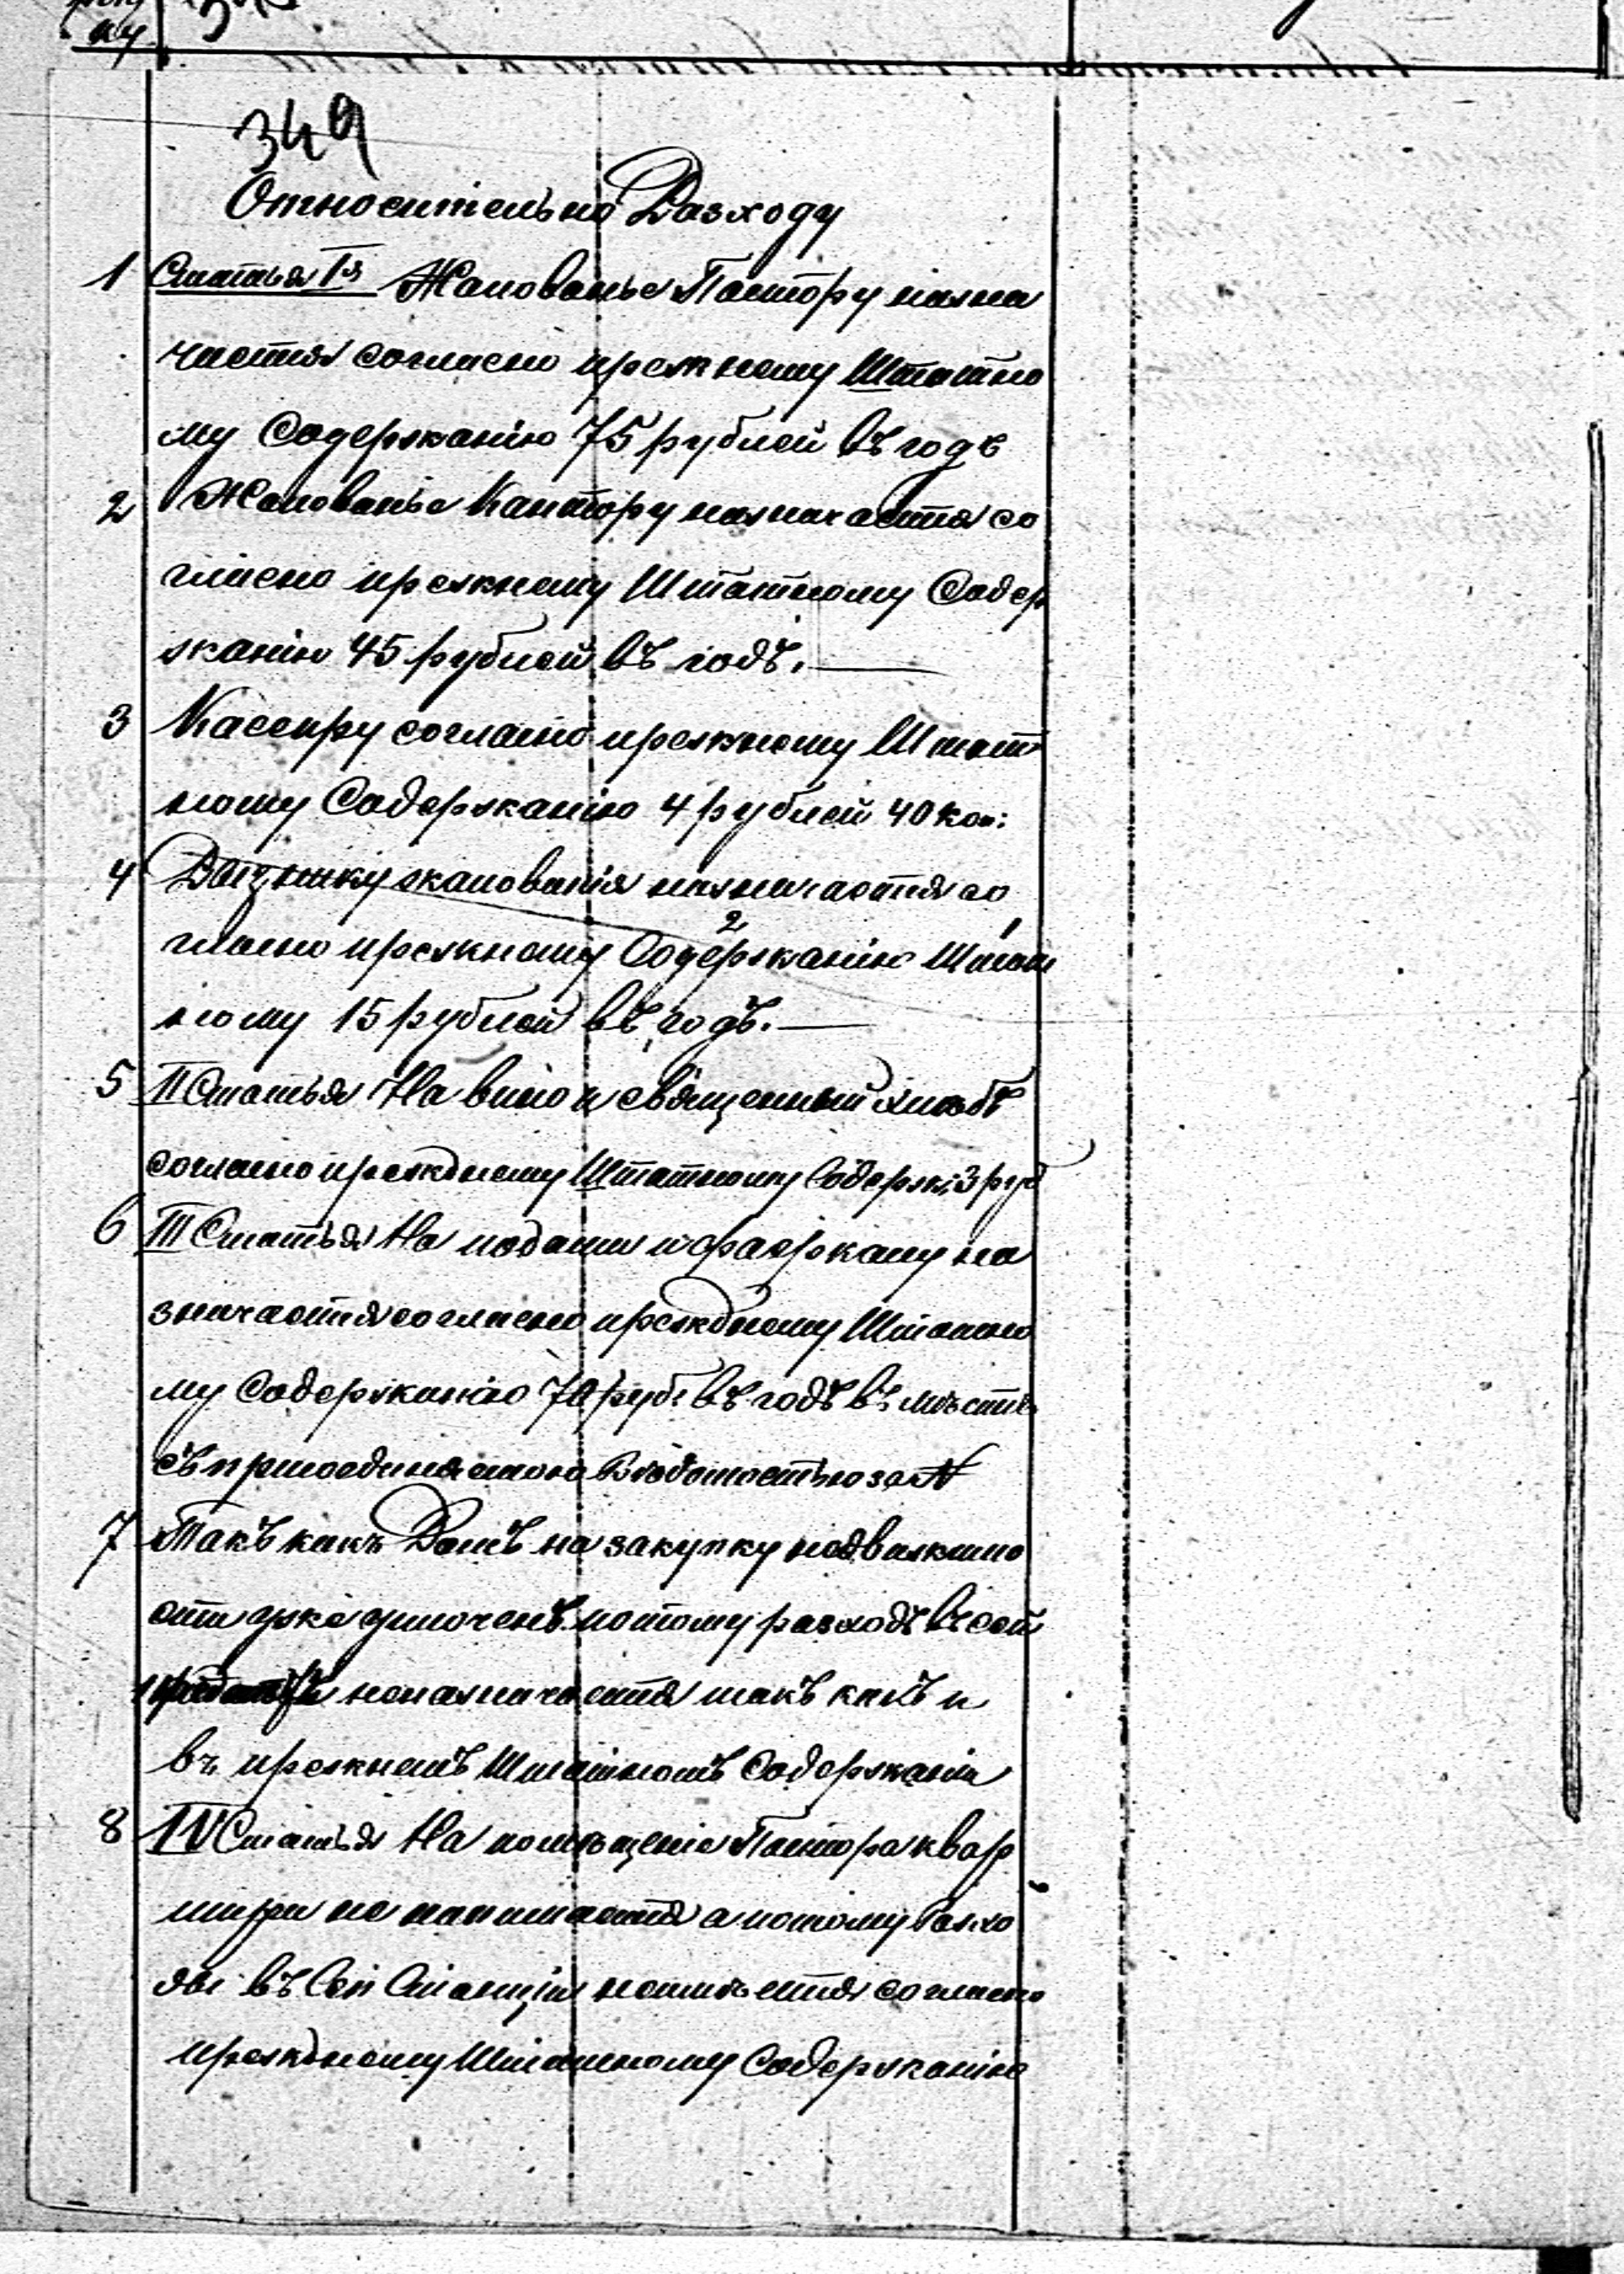 349
Относительно Разходу
1 Статья Iя Жалованье Пастору назна
чается согласно прежнему Штатно
му Содержанію 75 рублей въ годъ
2 Жалованье Кантору назначается со
гласно прежнему Штатному Содер
жанію 45 рублей въ годъ.
3 Кассиру согласно прежнему Штат
ному Содержанію 4 рублей 40 коп:
4 жалованія назначается со
гласно прежнему Содержанію Штат
ному 15 рублей въ годъ.
5 II Статья На вино и священный хлебъ
согласно прежднему Штатному Содерж: 3 руб
6 III Статья На подати и на
значается согласно прежднему Штатно
му Содержанію 70 руб: въ годъ вместе
съ присоединяемою Ведомостью за N
7 Такъ какъ Домъ на закупку недвижимо
сти уже уплоченъ потому разходъ въ сей
неназначается такъ какъ и
въ прежнемъ Штатномъ Содержаніи
8 IV Статья На помещеніе Пастора квар
тира не нанимается а потому Разхо
ды въ Сей неимеется согласно
прежднему Штатному Содержанію